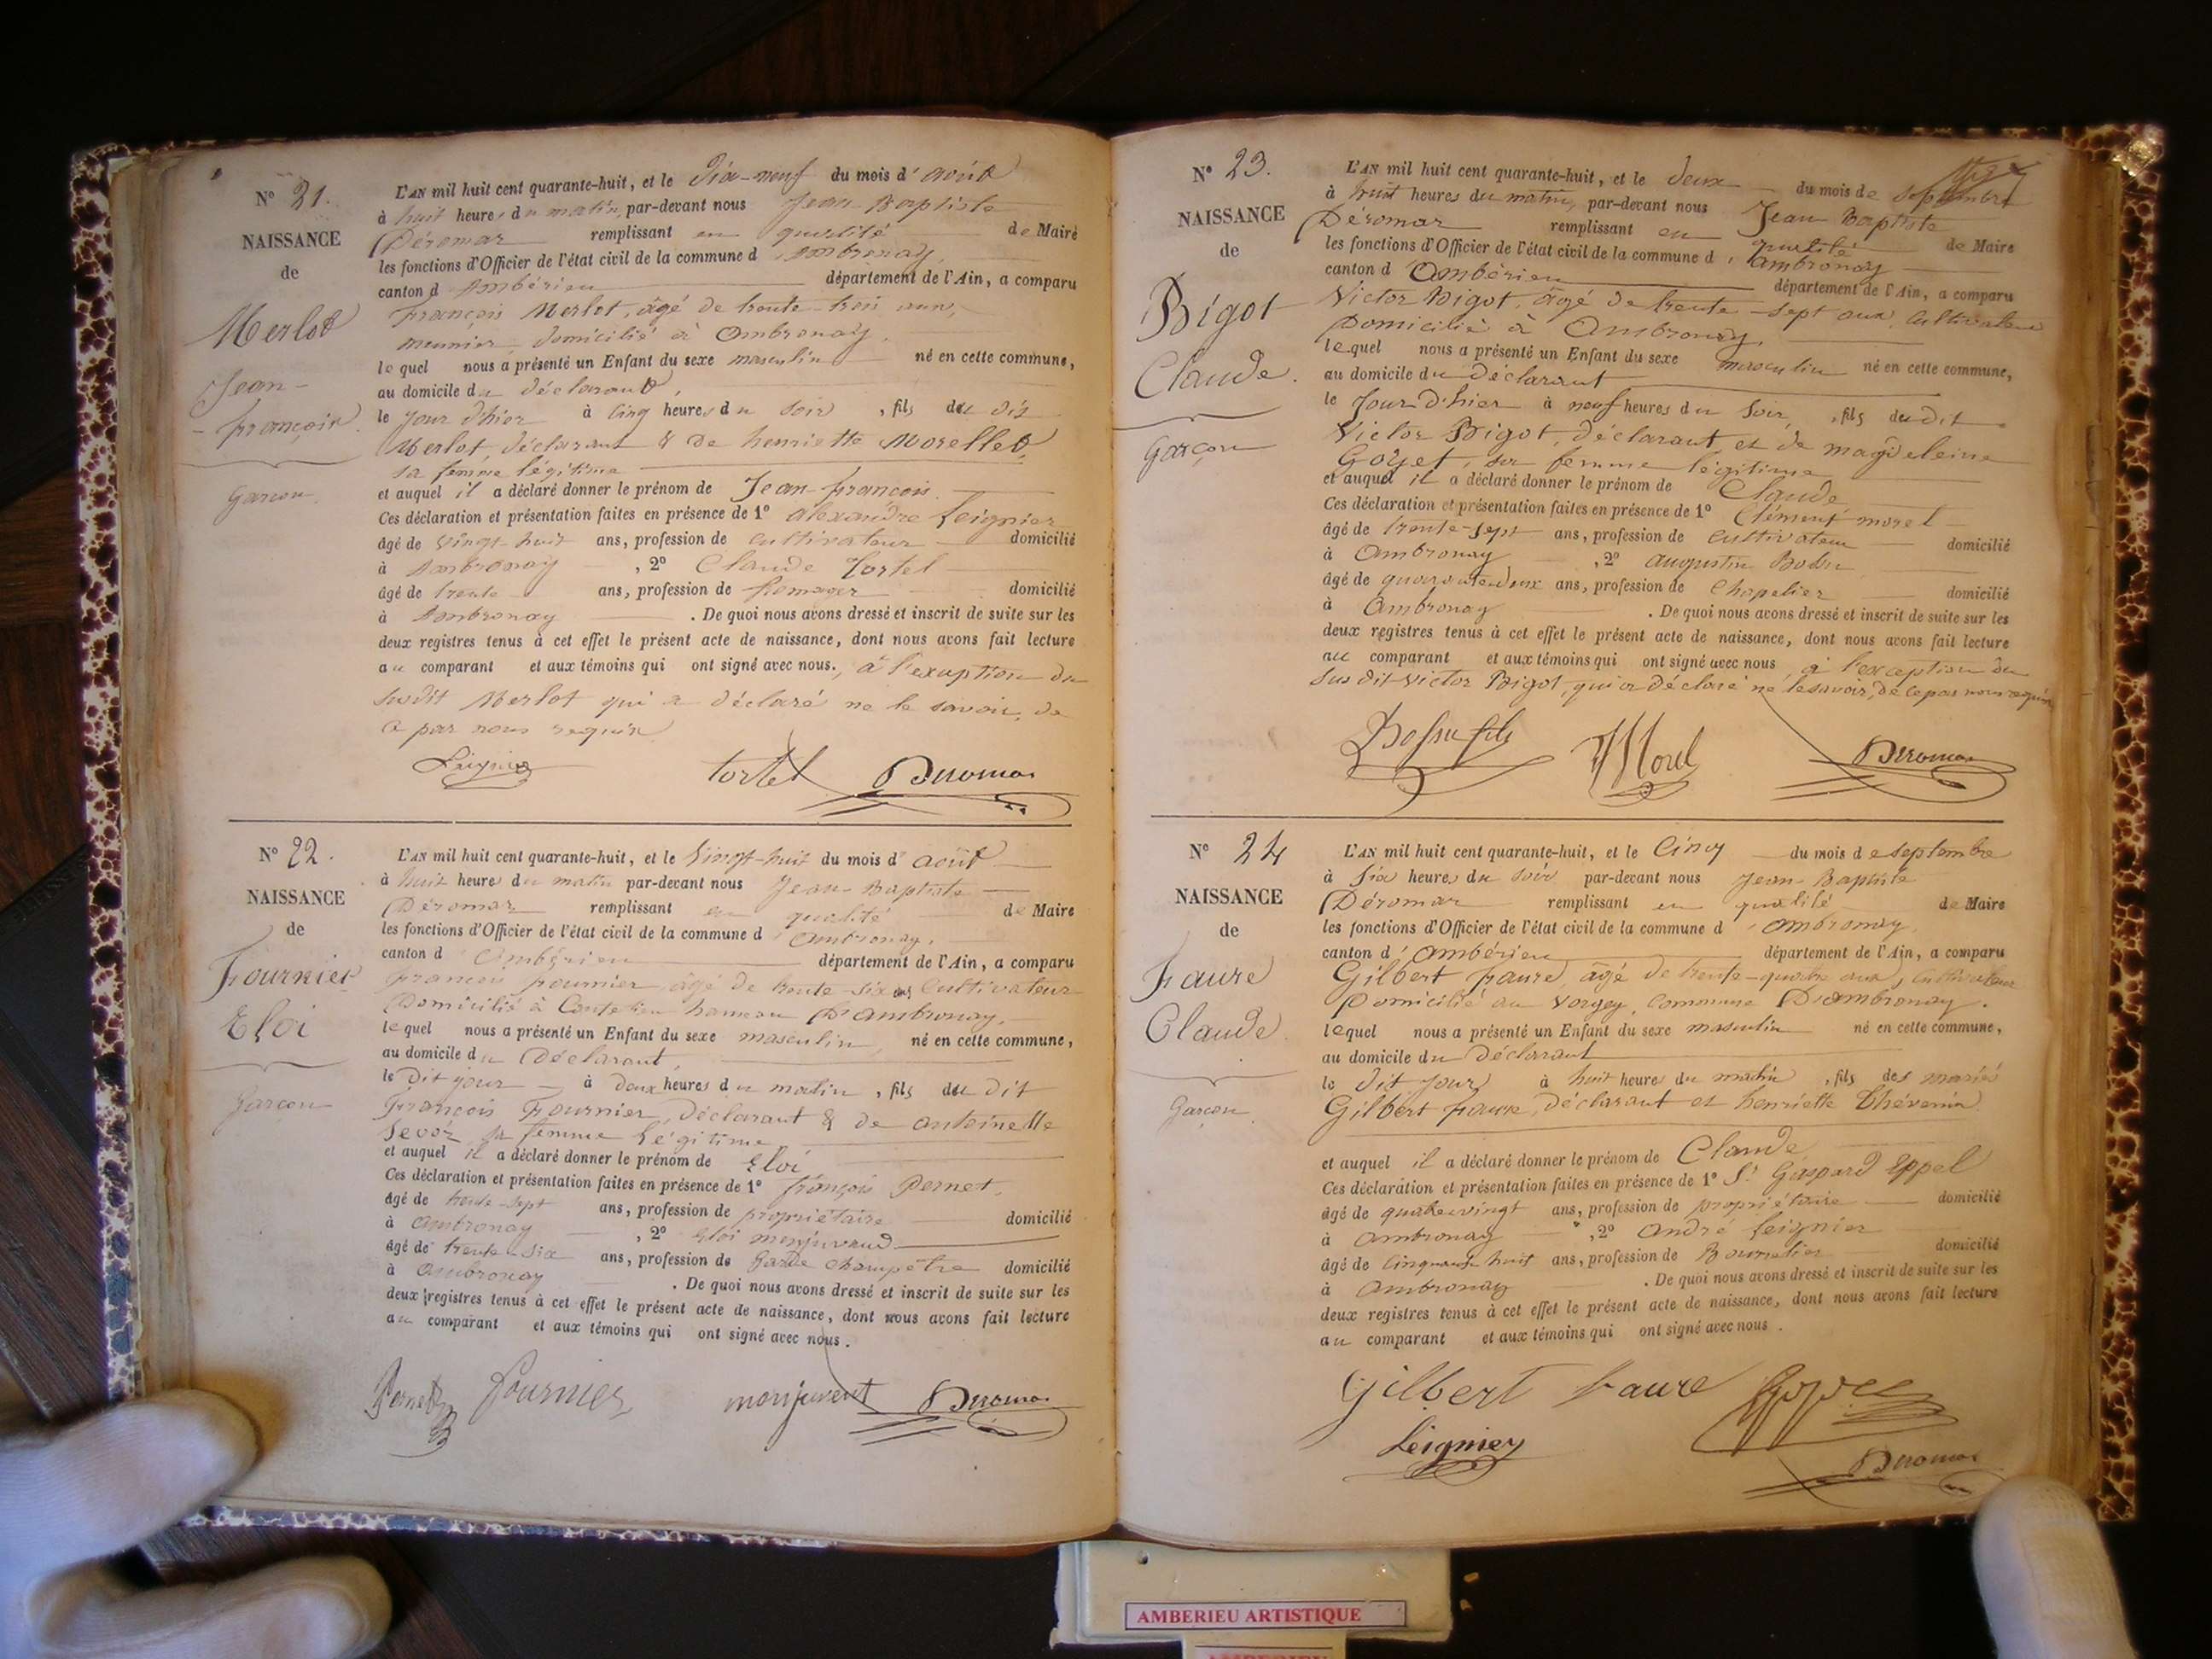 N° 21.
NAISSANCE
de
Merlot
Jean-
François
Garçon.
L'AN mil huit cent quarante-huit, et le Dix-neuf du mois d'août
à huit heures du matin, par-devant nous Jean-Baptiste
Déromas remplissant en qualité de Maire
les fonctions d'Officier de l'état civil de la commune d'Ambronay,
canton d'Ambérieu département de l'Ain, a comparu
François Merlot, âgé de trente-trois ans,
meunier, domicilié à Ambronay,
lequel nous a présenté un Enfant du sexe masculin né en cette commune,
au domicile du déclarant,
le jour d'hier à cinq heures du soir, fils du dit
Merlot, déclarant & de henriette Morellet,
sa femme légitime
et auquel il a déclaré donner le prénom de Jean-François.
Ces déclaration et présentation faites en présence de 1° alexandre Leignier
âgé de vingt-huit ans, profession de cultivateur domicilié
à Ambronay, 2° Claude Tortel
âgé de trente ans, profession de fromager domicilié
à Ambronay. De quoi nous avons dressé et inscrit de suite sur les
deux registres tenus à cet effet le présent acte de naissance, dont nous avons fait lecture
au comparant et aux témoins qui ont signé avec nous, à l'exception du
susdit Merlot qui a déclaré ne le savoir, de
ce par nous requis
Leignier tortel Deromas
N° 22.
NAISSANCE
de
Fournier
Eloi
Garçon
L'AN mil huit cent quarante-huit, et le vingt-huit du mois d'août
à huit heures du matin par-devant nous Jean-Baptiste
Déromas remplissant en qualité de Maire
les fonctions d'Officier de l'état civil de la commune d'Ambronay,
canton d'Ambérieu département de l'Ain, a comparu
François fournier, âgé de trente-six ans, cultivateur
Domicilié à hameau D'ambronay,
lequel nous a présenté un Enfant du sexe masculin, né en cette commune,
au domicile du Déclarant,
le Dit jour à deux heures du matin, fils du dit
François Fournier, déclarant & de antoinette
sa femme légitime
et auquel il a déclaré donner le prénom de Eloi
Ces déclaration et présentation faites en présence de 1° françois Pernet,
âgé de trente-sept ans, profession de propriétaire domicilié
à ambronay, 2° Eloi monjuvand
âgé de trente-six ans, profession de Garde champêtre domicilié
à Ambronay. De quoi nous avons dressé et inscrit de suite sur les
deux registres tenus à cet effet le présent acte de naissance, dont nous avons fait lecture
au comparant et aux témoins qui ont signé avec nous.
Pernet fournier monjuvent Deromas
N° 23.
NAISSANCE
de
Bigot
Claude.
Garçon
L'AN mil huit cent quarante-huit, et le deux du mois de septembre
à huit heures du matin, par-devant nous Jean Baptiste
Déromas remplissant en qualité de Maire
les fonctions d'Officier de l'état civil de la commune d'ambronay
canton d'Ambérieu département de l'Ain, a comparu
Victor Bigot, âgé de trente-sept ans, cultivateur
Domicilié à Ambronay,
lequel nous a présenté un Enfant du sexe masculin né en cette commune,
au domicile du déclarant
le Jour d'hier à neuf heures du soir, fils du dit
Victor Bigot, déclarant et de magdeleine
Goyet, sa femme légitime
et auquel il a déclaré donner le prénom de Claude
Ces déclaration et présentation faites en présence de 1° Clément morel
âgé de trente-sept ans, profession de cultivateur domicilié
à Ambronay, 2° augustin
âgé de quarante deux ans, profession de Chapelier domicilié
à Ambronay. De quoi nous avons dressé et inscrit de suite sur les
deux registres tenus à cet effet le présent acte de naissance, dont nous avons fait lecture
au comparant et aux témoins qui ont signé avec nous, à l'exception du
susdit Victor Bigot, qui a déclaré ne le savoir, de ce par nous requis
fils Morel Deromas
N° 24
NAISSANCE
de
Faure
Claude
Garçon
L'AN mil huit cent quarante-huit, et le Cinq du mois de septembre
à six heures du soir par-devant nous Jean-Baptiste
Déromas remplissant en qualité de Maire
les fonctions d'Officier de l'état civil de la commune d'ambronay
canton d'Ambérieu département de l'Ain, a comparu
Gilbert faure, âgé de trente-quatre ans, cultivateur
Domicilié au Vorgey, Commune D'ambronay.
lequel nous a présenté un Enfant du sexe masculin né en cette commune,
au domicile du Déclarant
le dit Jour à huit heures du matin, fils des mariés
Gilbert faure, déclarant et henriette Thévenin
et auquel il a déclaré donner le prénom de Claude
Ces déclaration et présentation faites en présence de 1° Sr Gaspard Eppel
âgé de quatrevingt ans, profession de propriétaire domicilié
à Ambronay, 2° andré Leignier
âgé de cinquante huit ans, profession de Bourrelier domicilié
à Ambronay. De quoi nous avons dressé et inscrit de suite sur les
deux registres tenus à cet effet le présent acte de naissance, dont nous avons fait lecture
au comparant et aux témoins qui ont signé avec nous.
Gilbert faure
Leignier
Deromas
AMBERIEU ARTISTIQUE